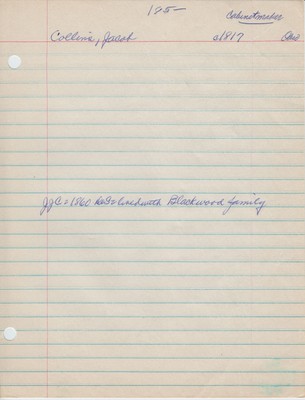 125—
Cabinetmaker
Collins, Jacob c1817 Ohio
1860 lived with Blackwood family